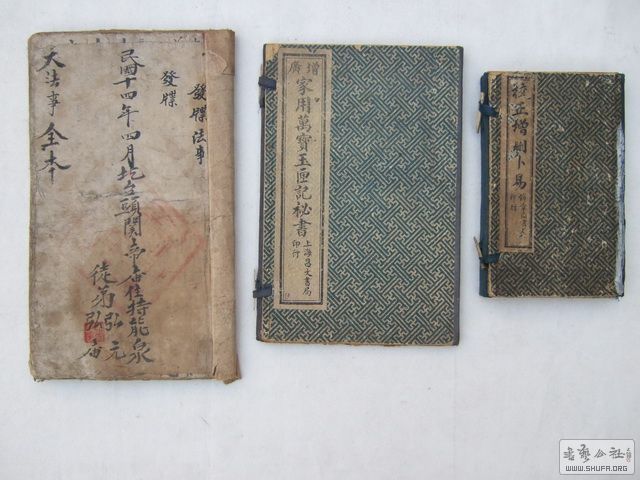 發牒法事
發牒
民國十四年四月圪台頭関帝庙住持能泉
徒弟弘元
弘
大法事全本
增廣
家用萬寶玉匣記祕書
上海昌文書局
印行
正增刪卜易
書藝公社
WWW.SHUFA.ORG